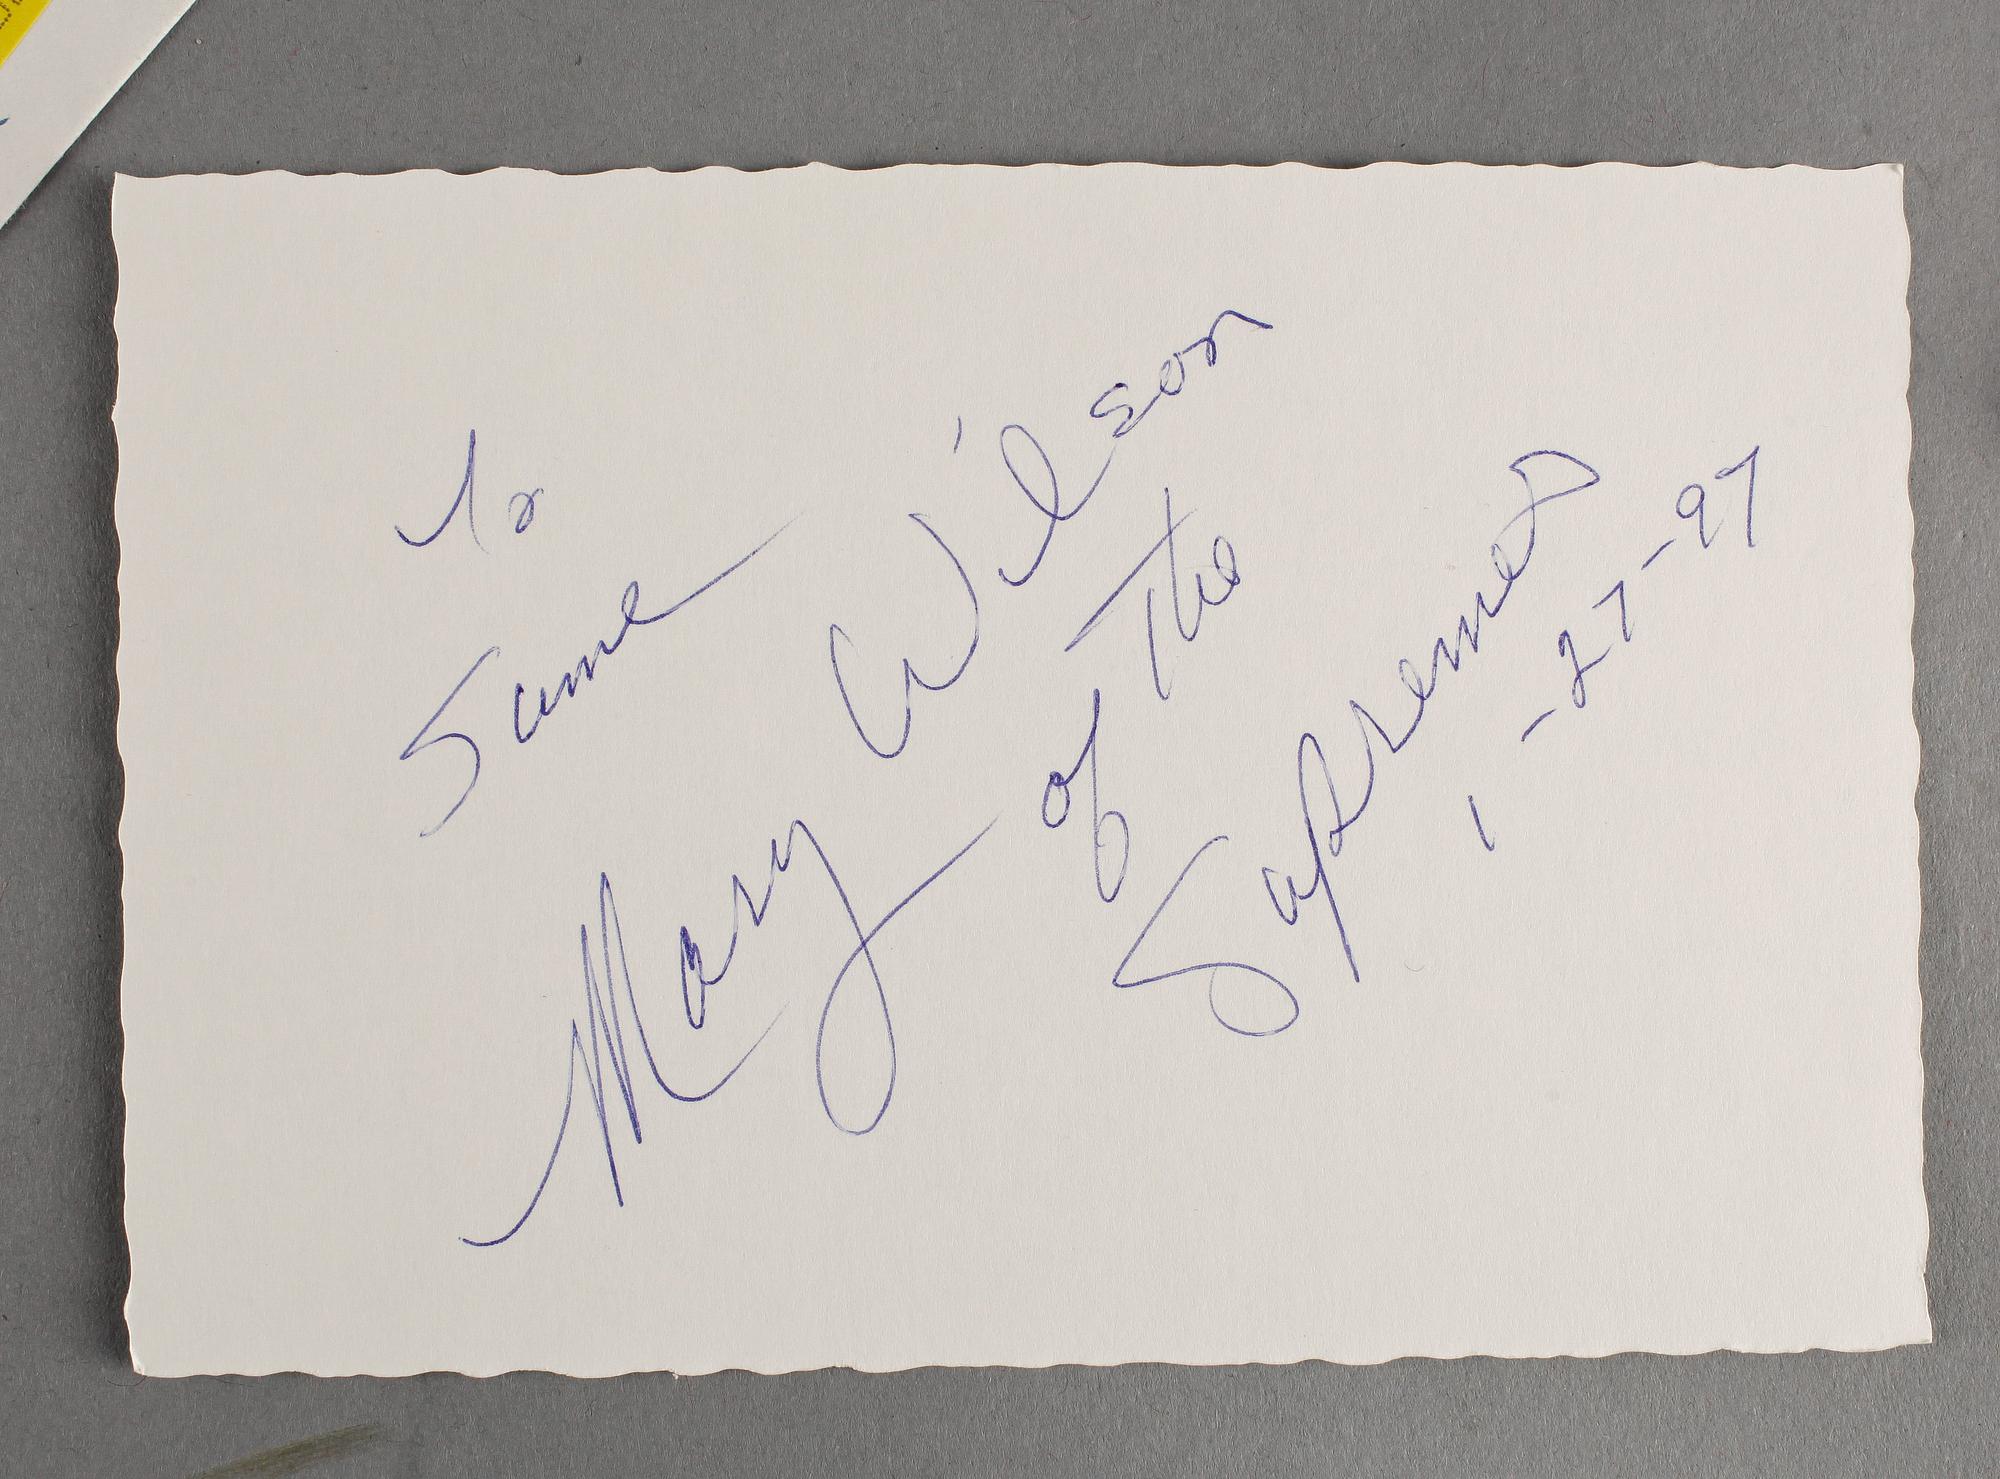 To
Sume
Mary Wilson
of The
Supremes
1-27-97